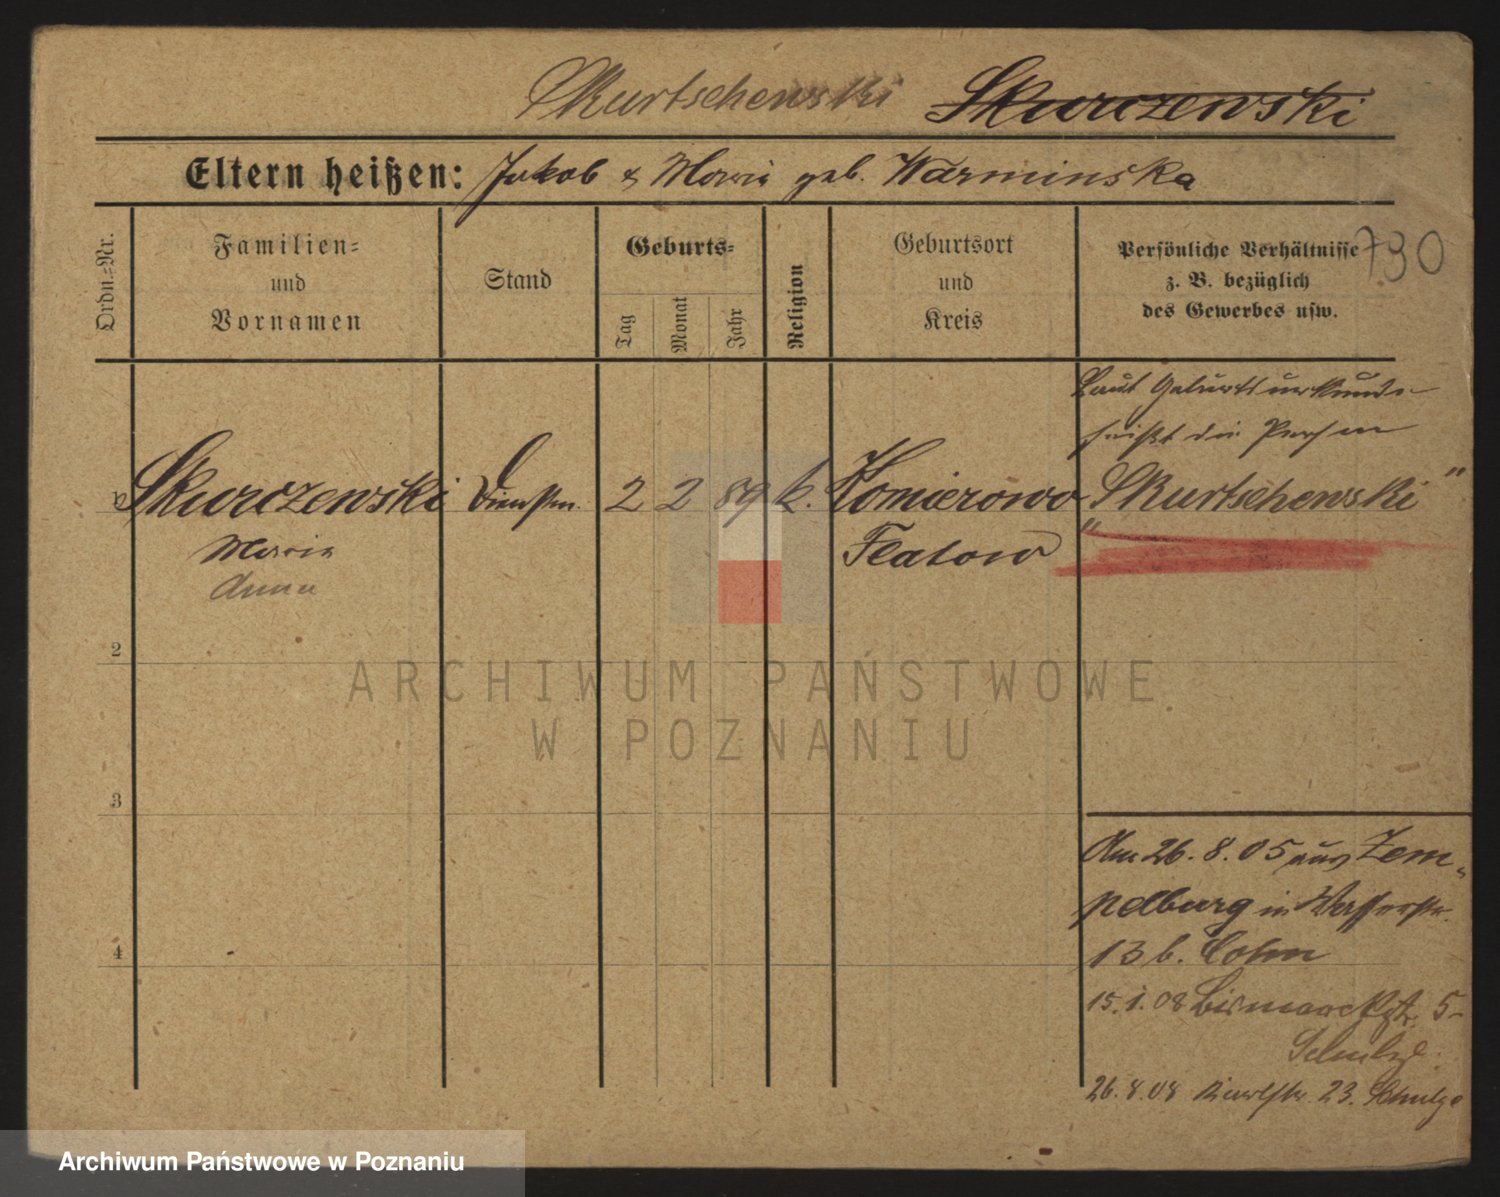 Skurtschewski Skurczewski
Eltern heißen: Jakob & Maria geb. Warminska
Ordn.=Nr.
Familien=
und
Vornamen
Stand
Geburts=
Tag
Monat
Jahr
Religion
Geburtsort
und
Kreis
Persönliche Verhältnisse
z. B. bezüglich
des Gewerbes usw.
790
Laut Geburtsurkunde
heißt die Person
Skurczewski Dienstm. 2 2 89 k. Komierowo "Skurtschewski"
Maria Flatow
Anna
2
3
4
Am 26. 8. 05 aus Zem-
pelburg in Wasserstr.
13 b. Cohn
15. 1. 08 Bismarckstr. 5
Schulze
26. 8. 08 23. Schulze
ARCHIWUM PAŃSTWOWE
W POZNANIU
Archiwum Państwowe w Poznaniu